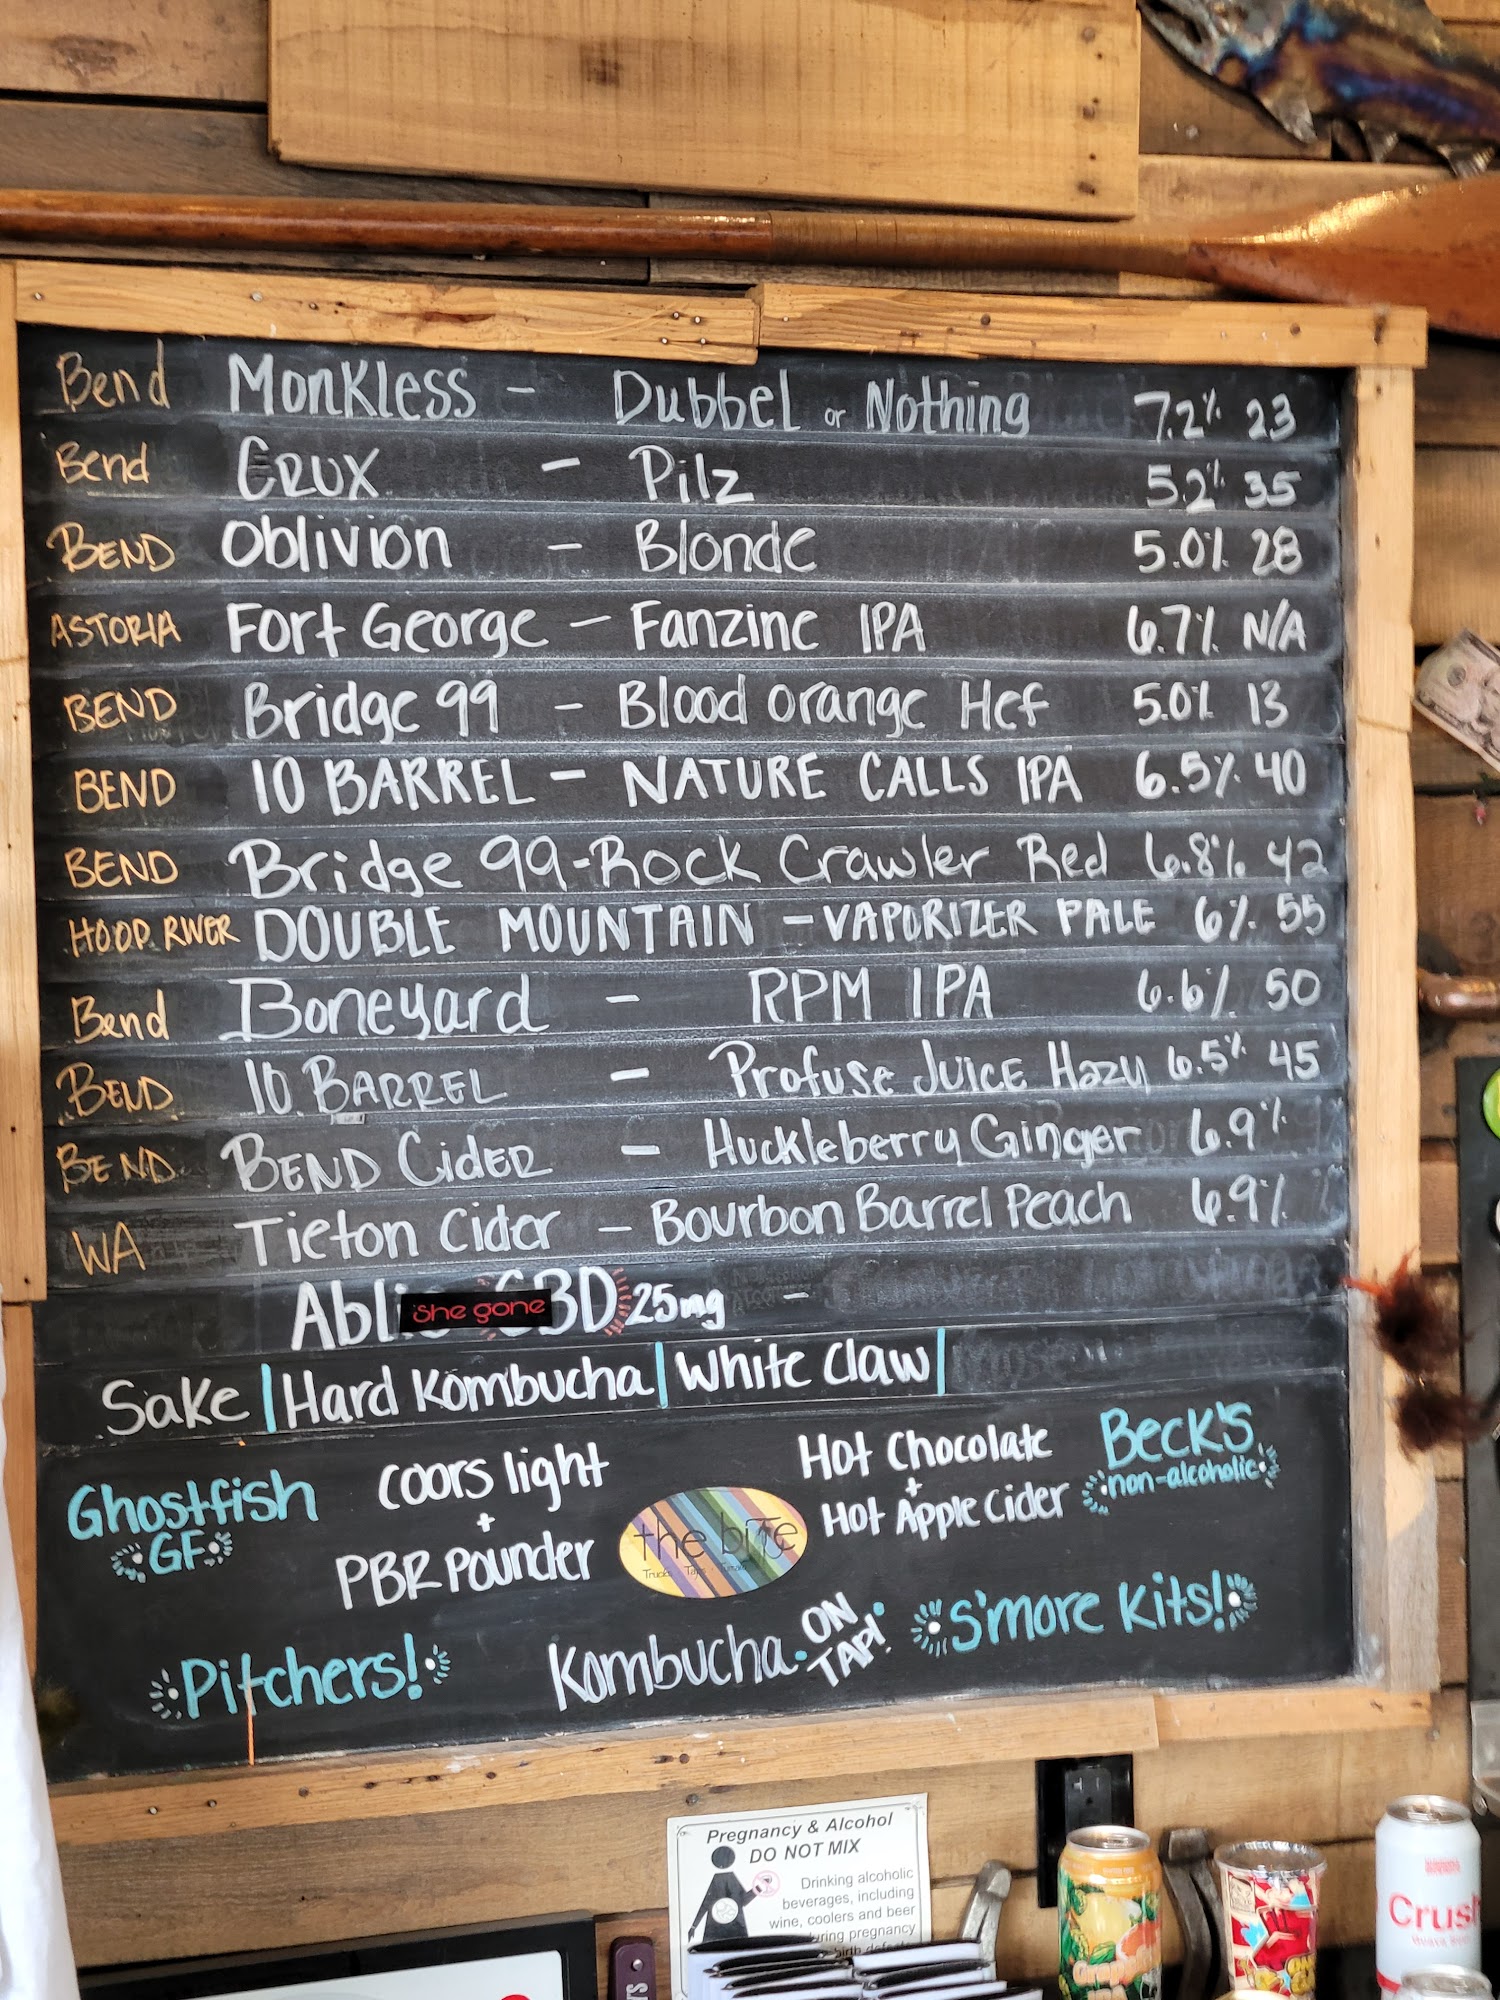 Bend Monkless - Dubbel or Nothing 7.2% 23
Bend Crux - Pilz 5.2% 35
BEND Oblivion - Blonde 5.0% 28
ASTORIA Fort George - Fanzine IPA 6.7% N/A
BEND Bridge 99 - Blood Orange Hef 5.0% 13
BEND 10 BARREL - NATURE CALLS IPA 6.5% 40
BEND Bridge 99 - Rock Crawler Red 6.8% 42
HOOD RIVER DOUBLE MOUNTAIN - VAPORIZER PALE 6% 55
Bend Boneyard - RPM IPA 6.6% 50
BEND 10 BARREL - Profuse Juice Hazy 6.5% 45
BEND BEND Cider - Huckleberry Ginger 6.9%
WA Tieton Cider - Bourbon Barrel Peach 6.9%
she gone CBD 25mg -
Sake | Hard Kombucha | White Claw |
Ghostfish
GF
Coors light
+
PBR Pounder
the bite
Hot Chocolate
+
Hot Apple Cider
Beck's
non-alcoholic
Pitchers!
Kombucha ON
TAP!
S'more Kits!
Pregnancy & Alcohol
DO NOT MIX
Drinking alcoholic
beverages, including
wine, coolers and beer
during pregnancy
birth
Crush